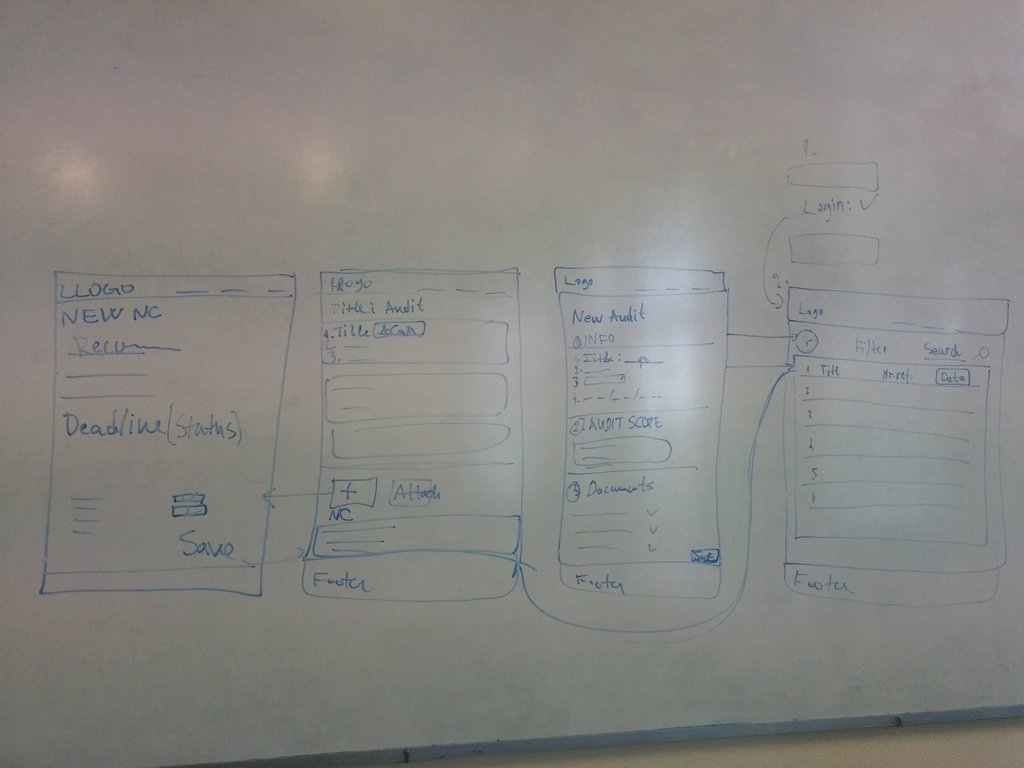 LLOGO
NEW NC
Deadline (Status)
Save
Logo
Title: Audit
1. Title
3.
+ Attach
NC
Footer
Logo
New Audit
① INFO
1. Title:
2.
3
4. --/--/--
② AUDIT SCOPE
③ Documents
Save
Footer
1.
Login: ✓
2.
Logo
Filter Search
1 Title Nr.ref. Data
2
3
4
5
6
Footer